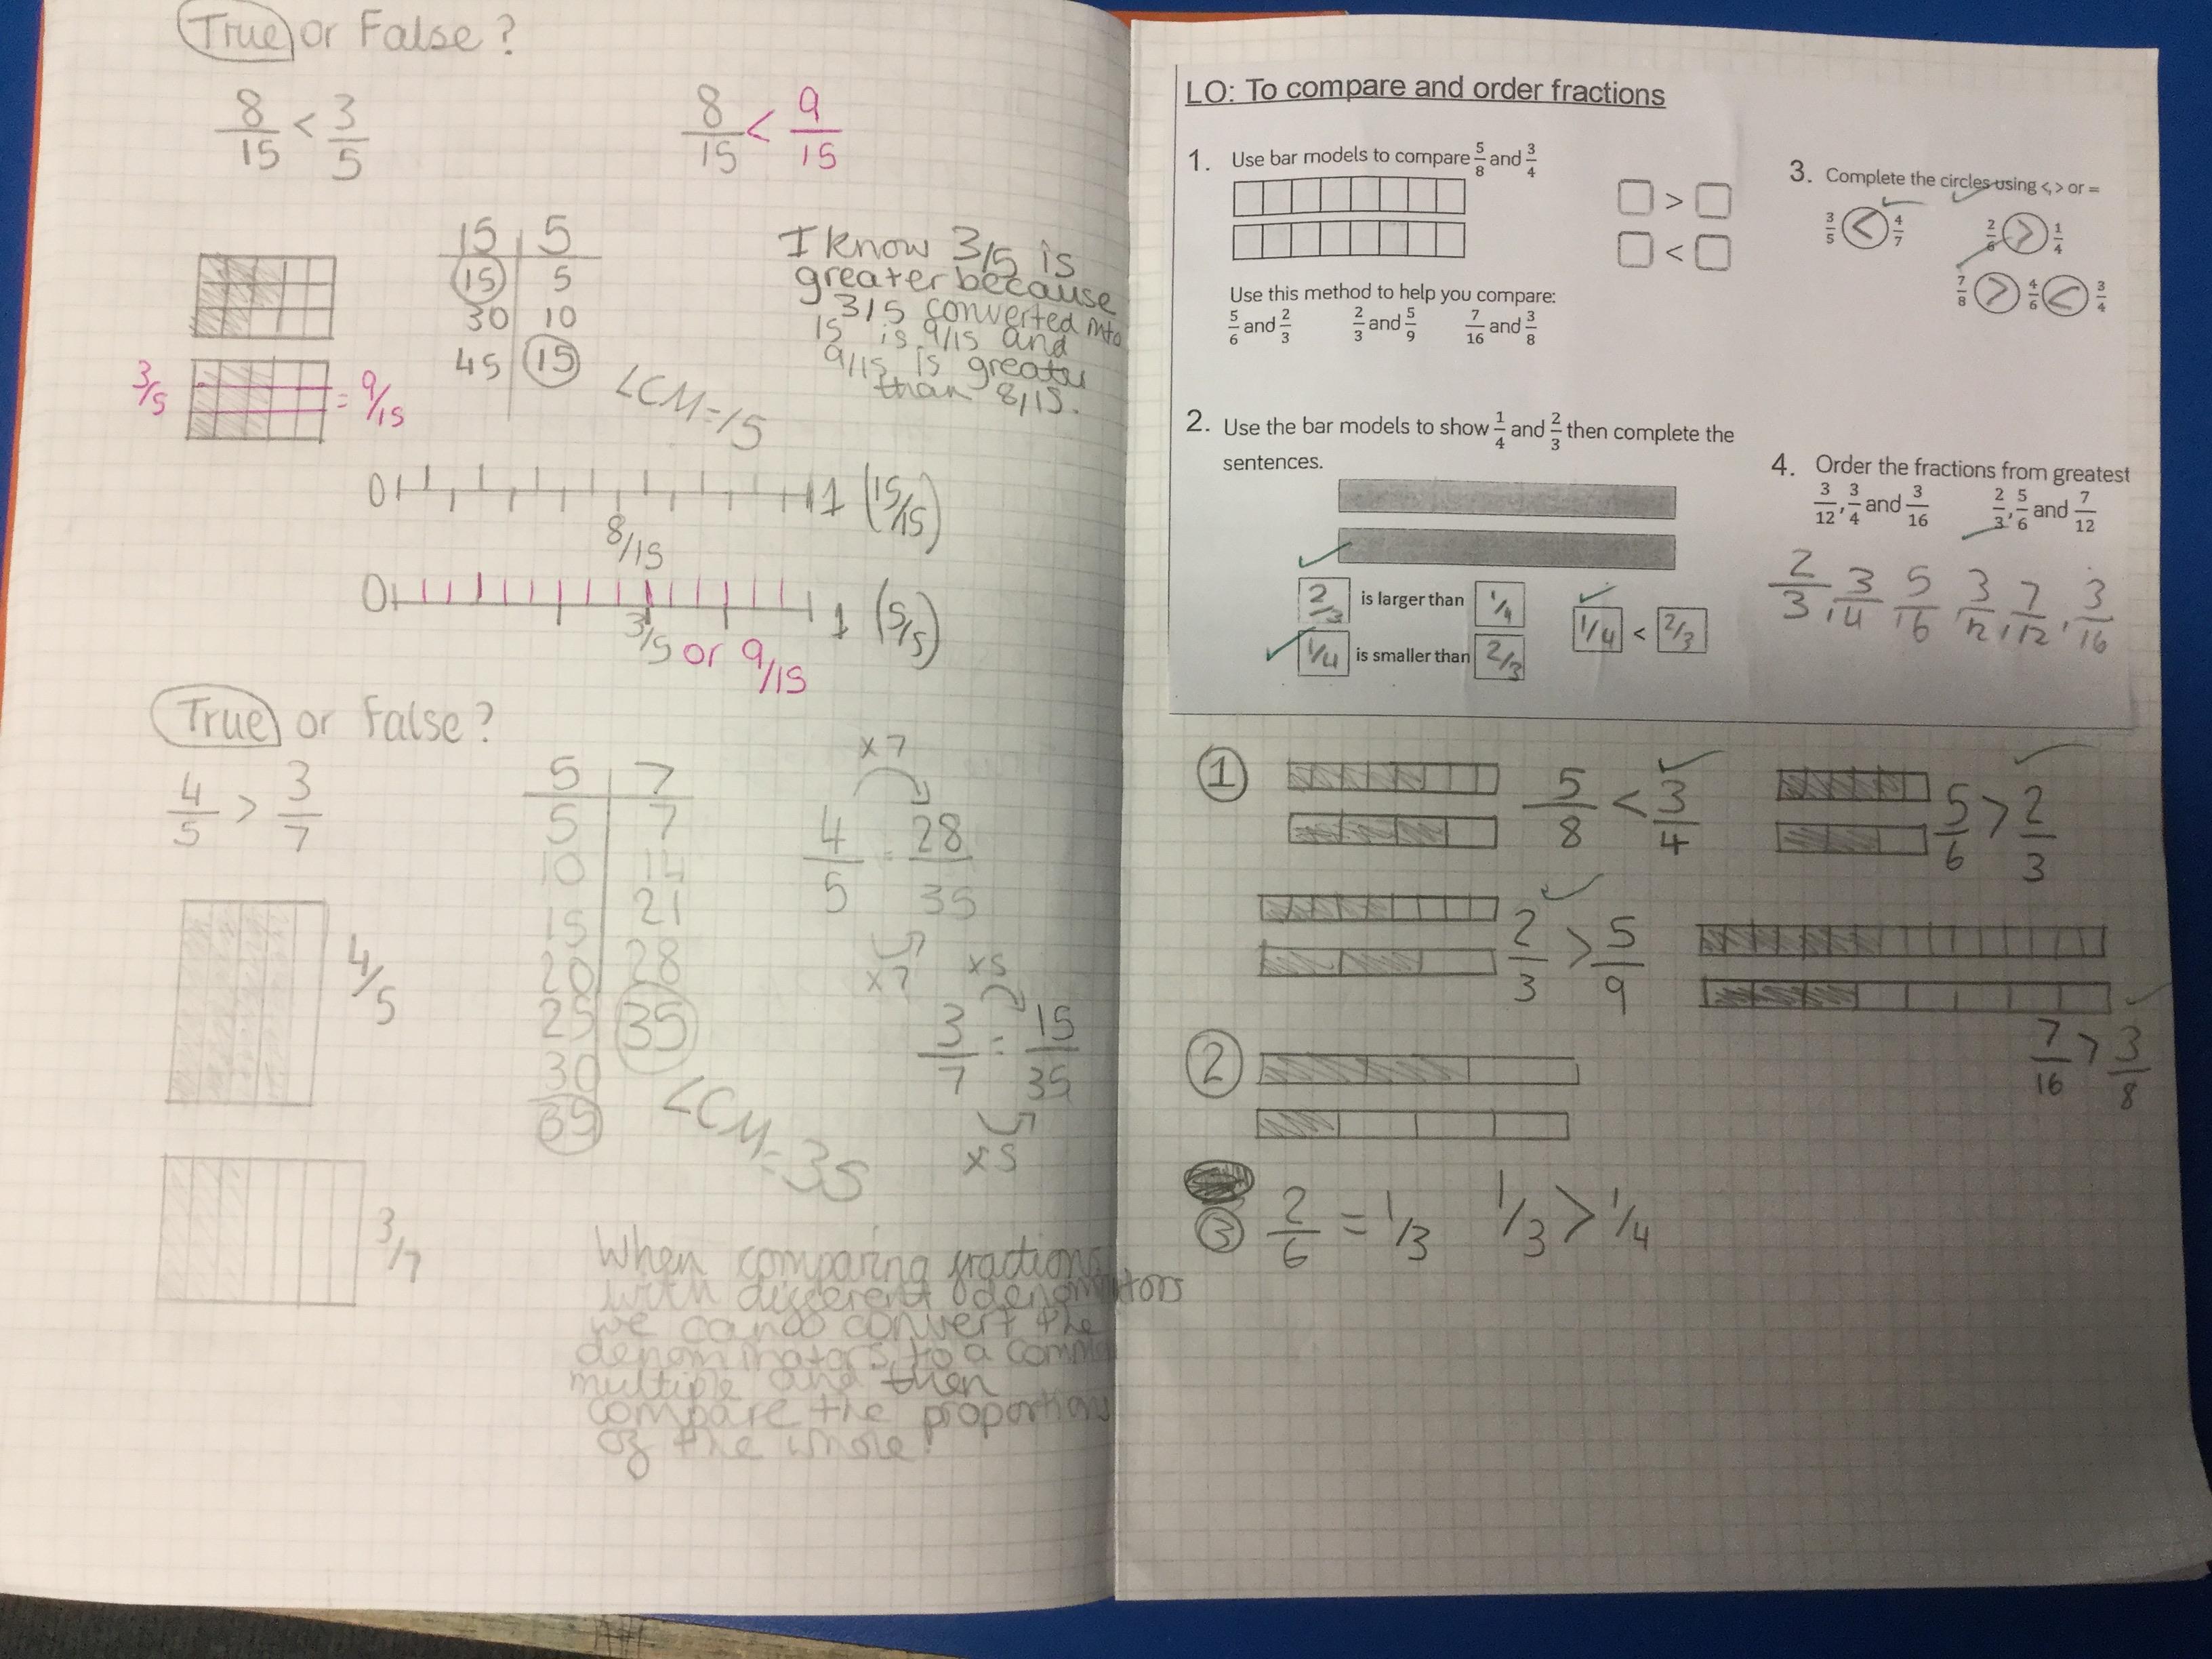 True or False?
8/15 < 3/5
8/15 < 9/15
15 5
15 5
30 10
45 15
LCM=15
I know 3/5 is
greater because
3/5 converted into
15 is 9/15 and
9/15 is greater
than 8/15.
3/5 = 9/15
0 1 (15/15)
8/15
0 1 (5/5)
3/5 or 9/15
True or False?
4/5 > 3/7
5 7
5 7
10 14
15 21
20 28
25 35
30
35
LCM=35
x7
4/5 = 28/35
x7
x5
3/7 = 15/35
x5
4/5
3/7
When comparing fractions
with different denominators
we can convert the
denominators to a
multiple and then
compare the proportions
of the whole.
LO: To compare and order fractions
1. Use bar models to compare 5/8 and 3/4
>
<
Use this method to help you compare:
5/6 and 2/3 2/3 and 5/9 7/16 and 3/8
2. Use the bar models to show 1/4 and 2/3 then complete the
sentences.
2/3 is larger than 1/4
1/4 is smaller than 2/3
1/4 < 2/3
3. Complete the circles using <, > or =
3/5 < 4/7 2/6 > 1/4
7/8 > 4/6 < 3/4
4. Order the fractions from greatest
3/12, 3/4 and 3/16 2/3, 5/6 and 7/12
2/3, 3/4 5/16 3/12, 7/12, 3/16
1 5/8 < 3/4 5/6 > 2/3
2/3 > 5/9
7/16 > 3/8
2
3 2/6 = 1/3 1/3 > 1/4